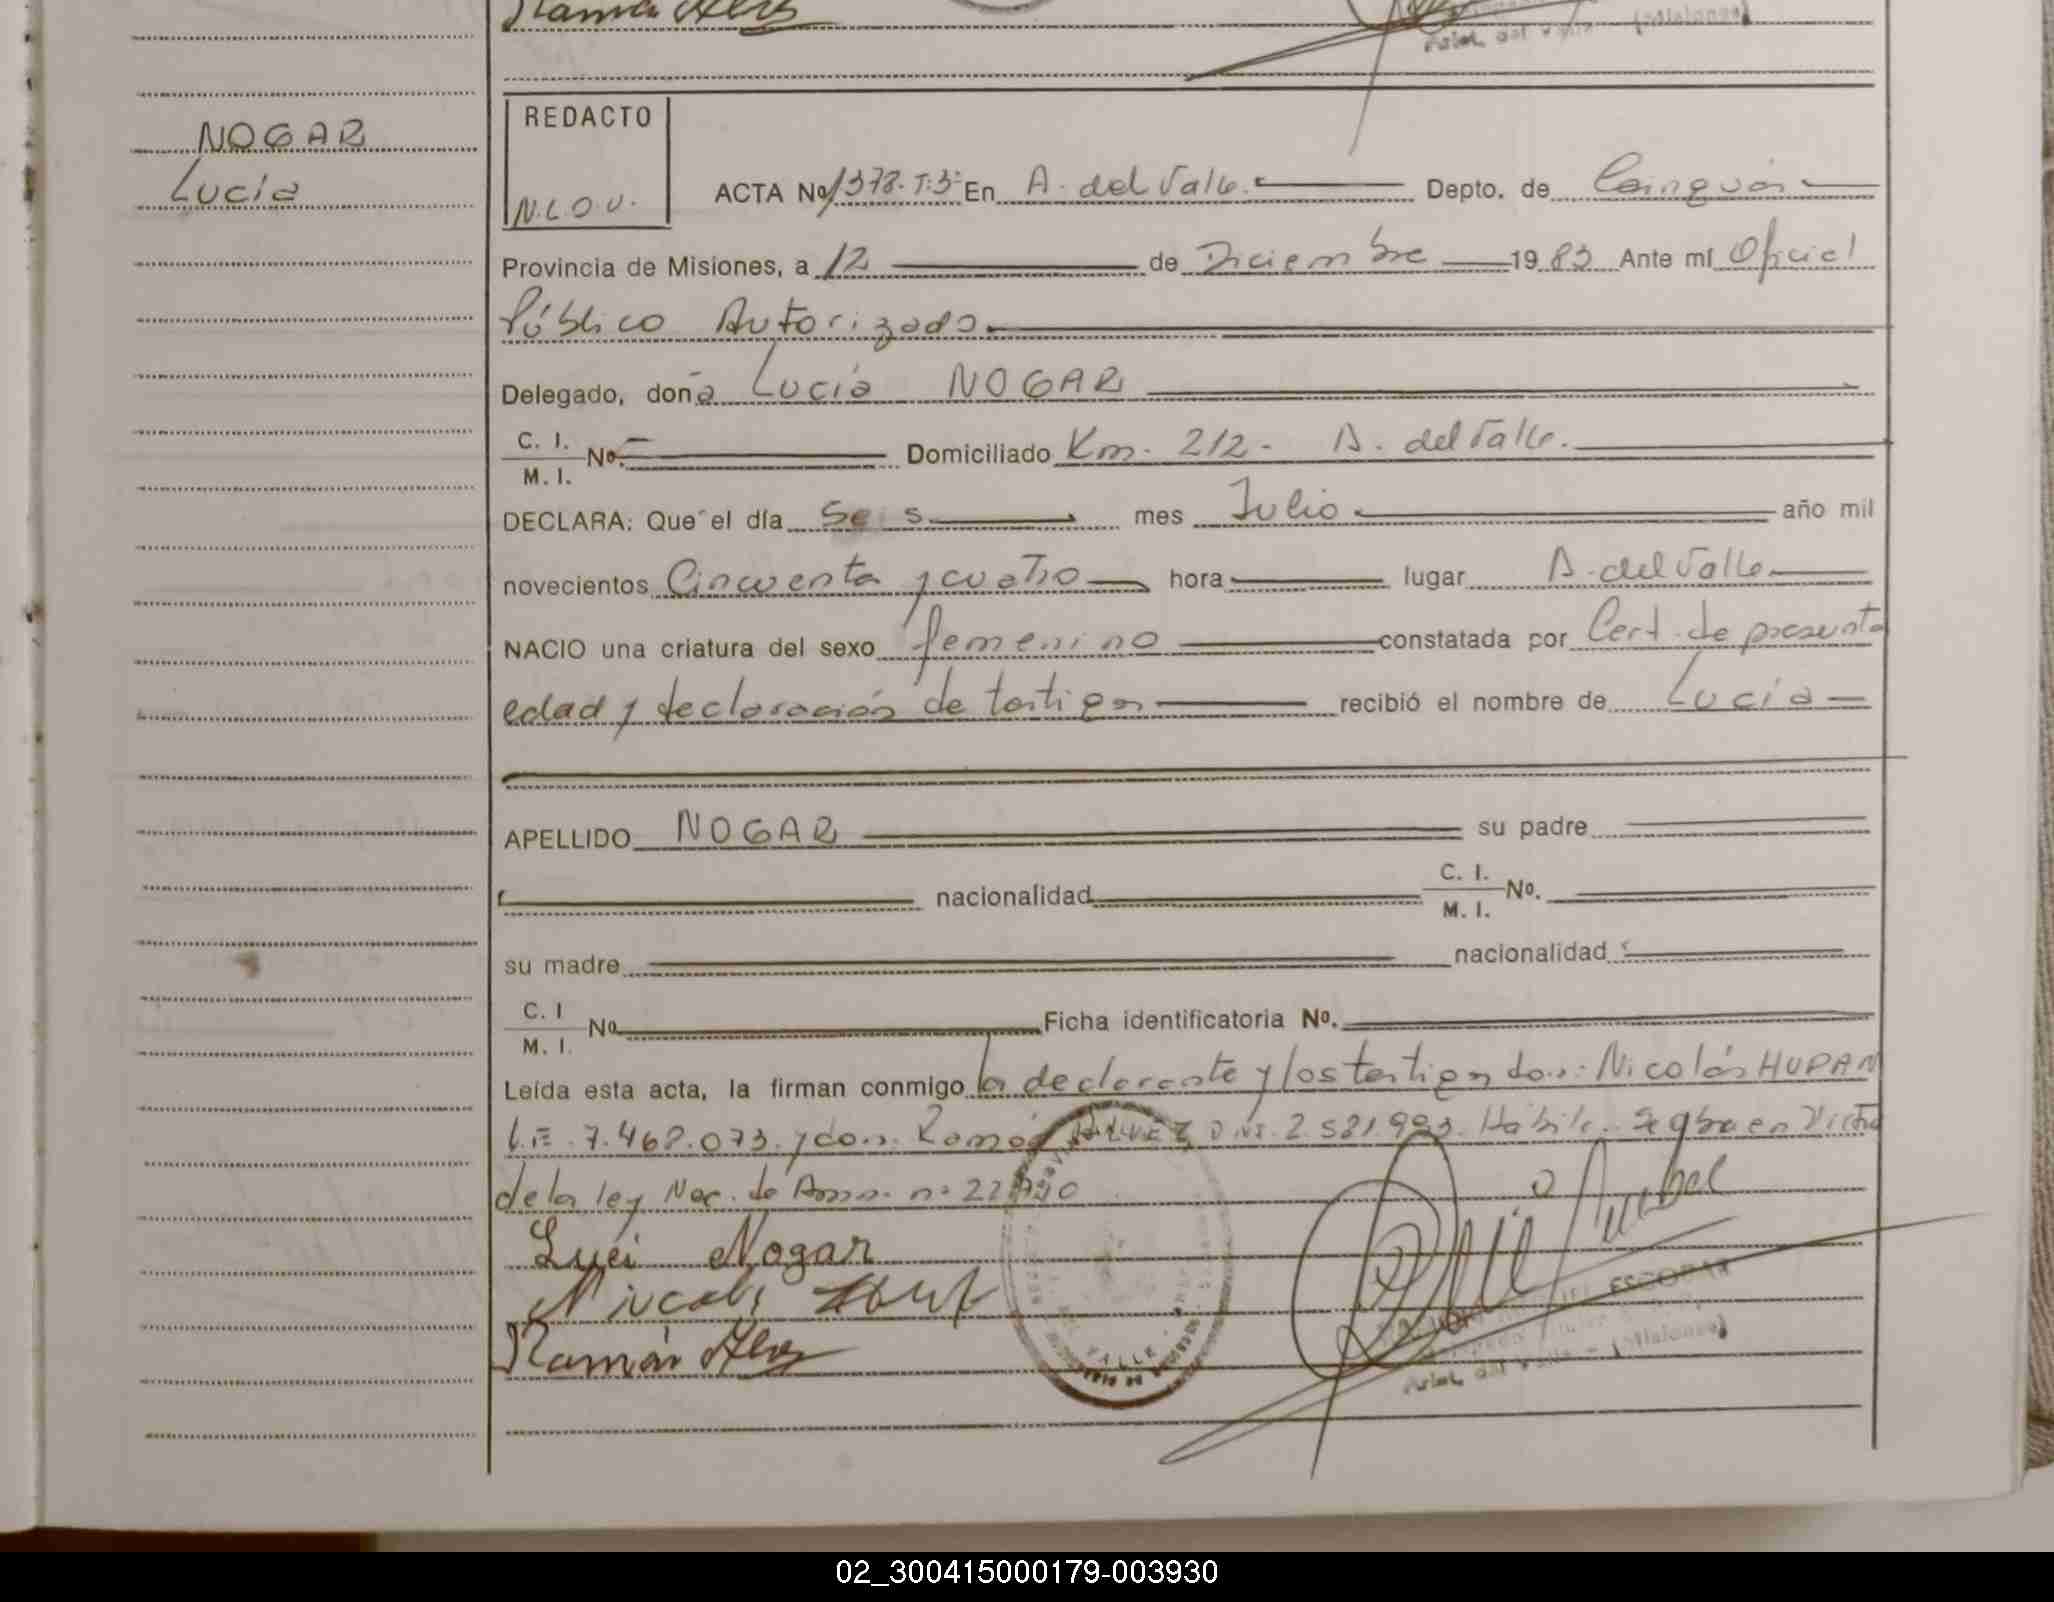 NOGAR
Lucía
REDACTO
N.L.O.V.
ACTA Nº 1378. T:3º En A. del Valle. Depto. de Cainguás
Provincia de Misiones, a 12 de Diciembre 1983 Ante mí Oficial
Público Autorizado.
Delegado, doña Lucía NOGAR
C. I.
M. I. Nº. Domiciliado Km. 212 - A. del Valle.
DECLARA: Que el día Seis mes Julio año mil
novecientos Cincuenta y cuatro hora lugar A. del Valle
NACIO una criatura del sexo femenino constatada por Cert. de presunta
edad y declaración de testigos recibió el nombre de Lucía
APELLIDO NOGAR su padre
nacionalidad C. I.
M. I. Nº.
su madre nacionalidad
C. I
M. I. Nº Ficha identificatoria Nº.
Leída esta acta, la firman conmigo la declarante y los testigos don: Nicolás HUPAN
L.E. 7.468.073. y don. Ramón ALVEZ D.N.I. 2.521.993. Hábiles. Se labra en Virtud
de la ley Nac. de Amn. nº
Luci Nogar
Nicolas
Ramón Alvez
ESCOBAR
Aris. del Valle - (Misiones)
VALLE
02_300415000179-003930